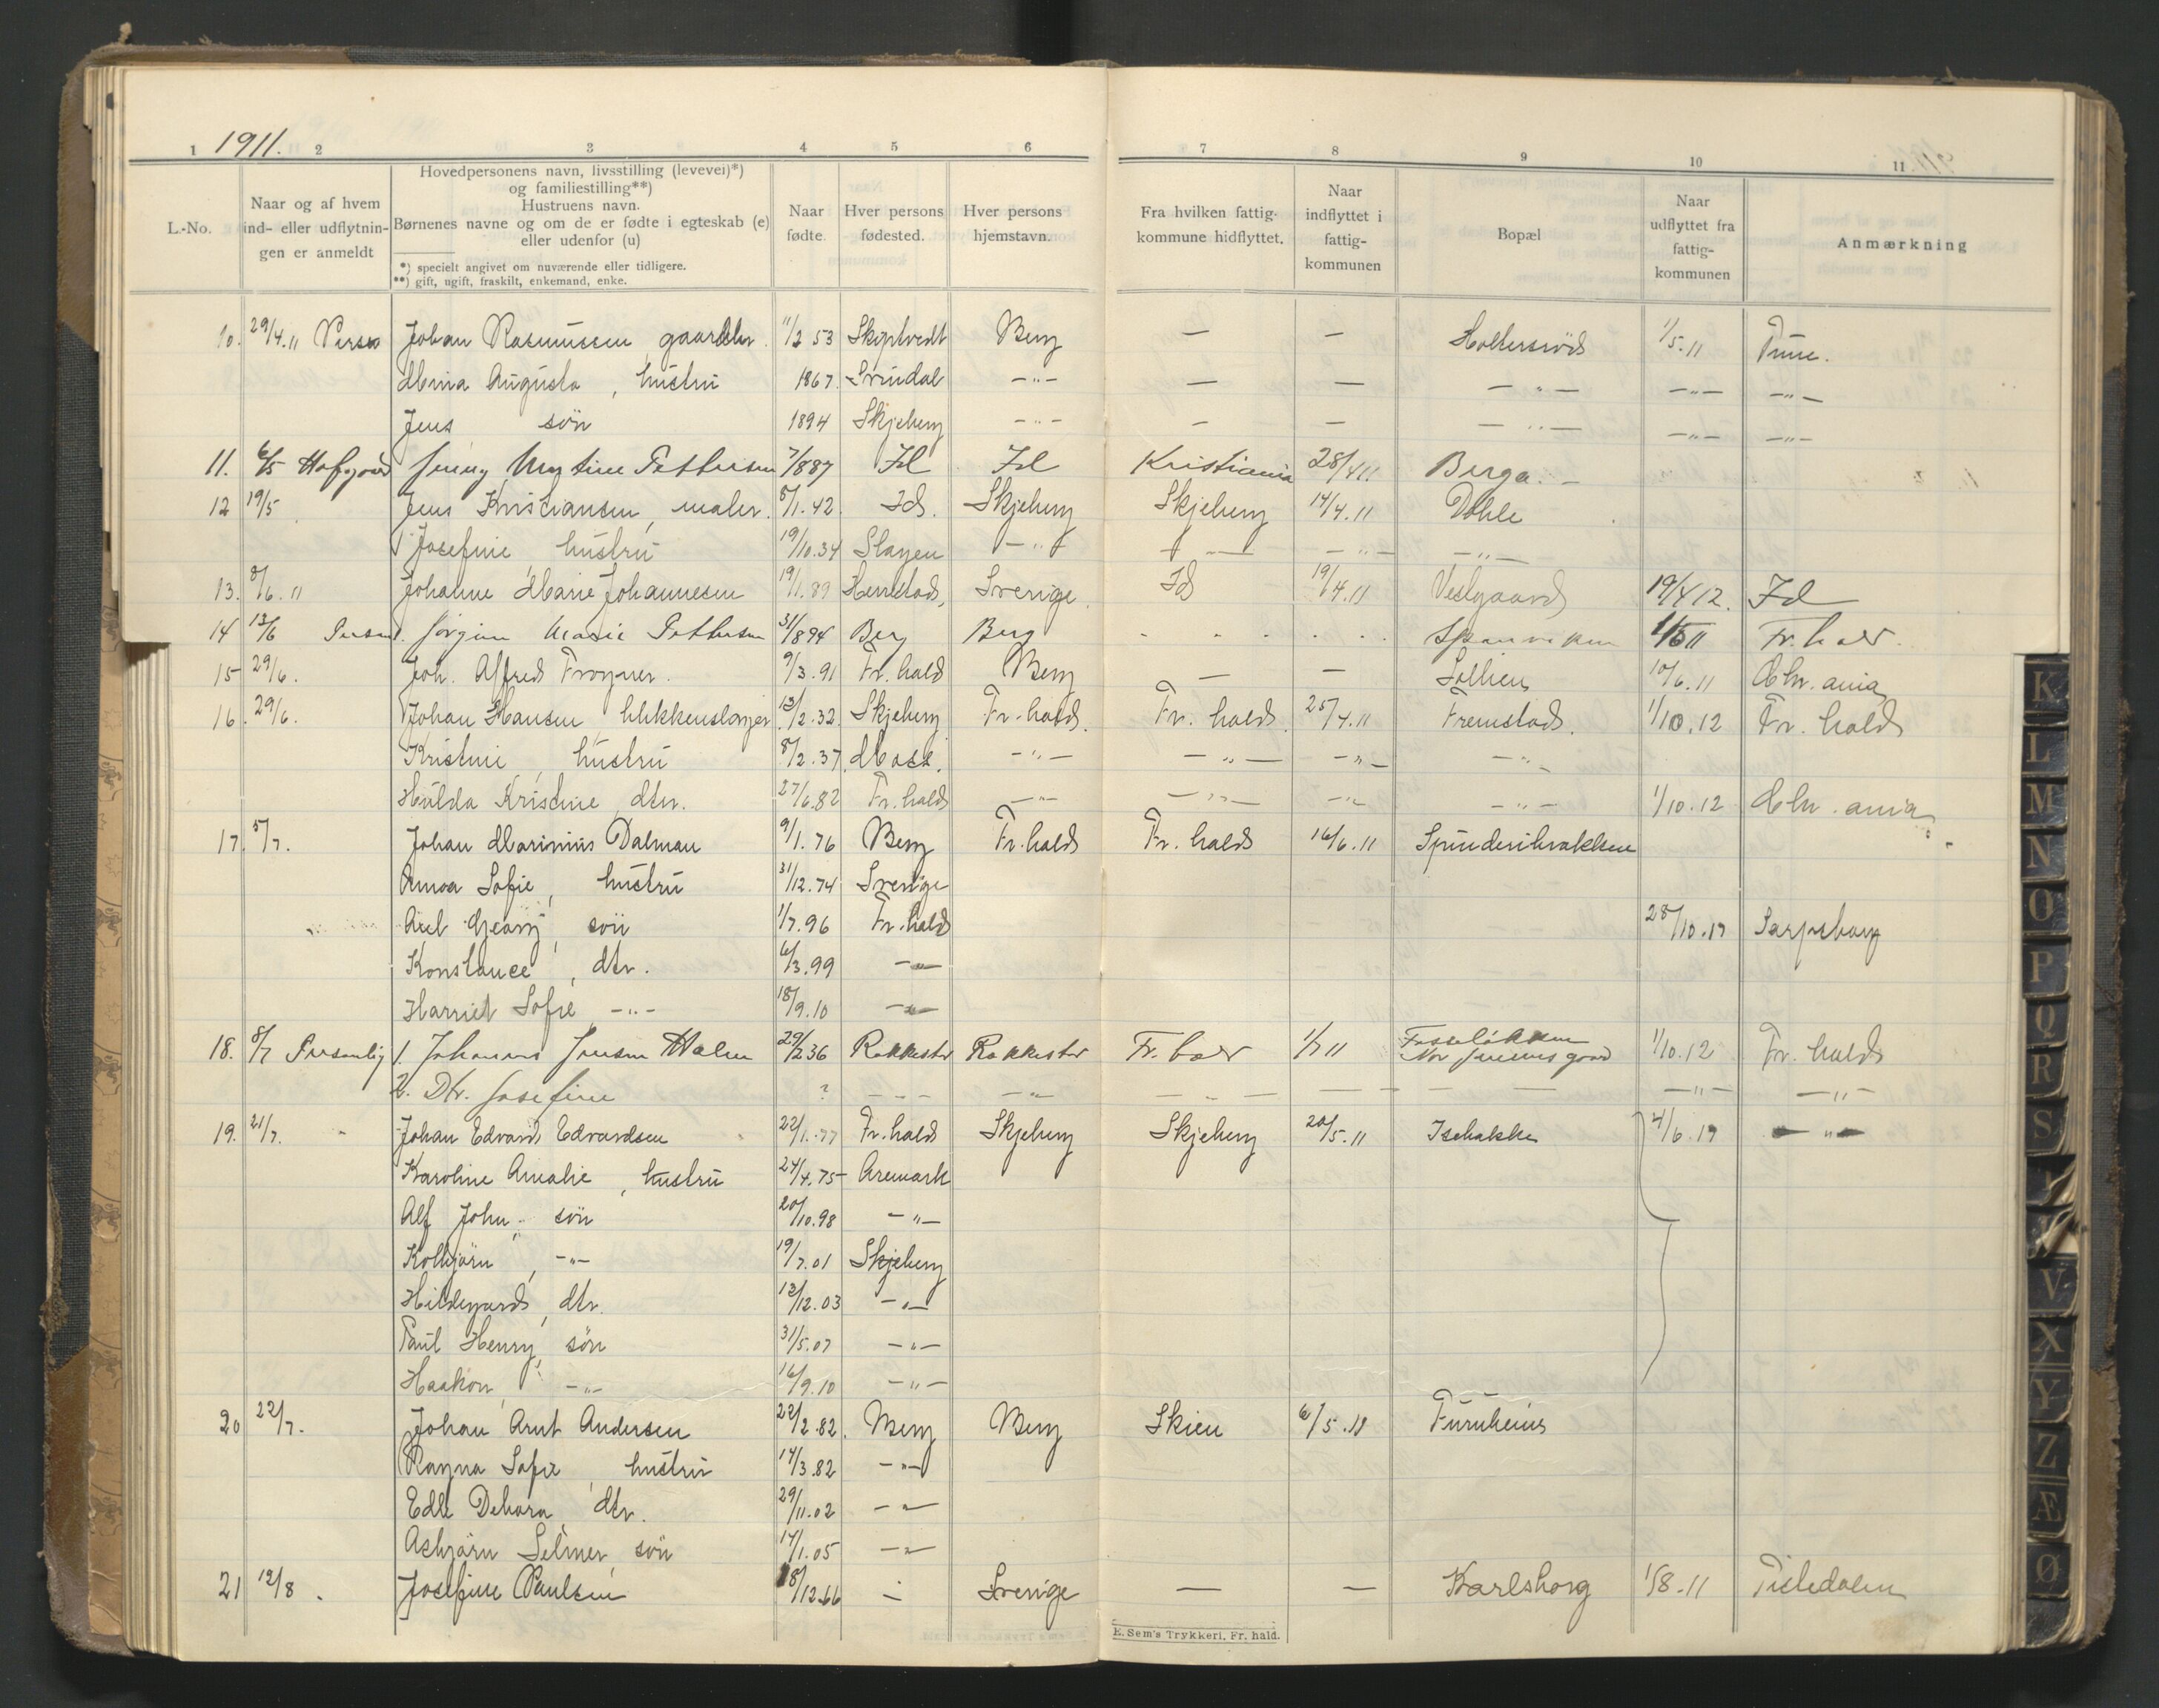 1911.
1 2 3 4 5 6 7 8 9 10 11
L.-No.
Naar og af hvem ind- eller udflytningen er anmeldt
Hovedpersonens navn, livsstilling (levevei)*)
og familiestilling**)
Hustruens navn.
Børnenes navne og om de er fødte i egteskab (e)
eller udenfor (u)
*) specielt angivet om nuværende eller tidligere.
**) gift, ugift, fraskilt, enkemand, enke.
Naar fødte.
Hver persons fødested.
Hver persons hjemstavn.
Fra hvilken fattigkommune hidflyttet.
Naar indflyttet i fattigkommunen
Bopæl
Naar udflyttet fra fattigkommunen
Anmærkning
10. 29/4.11 Johan Rasmussen 11/2 53 Skiptvedt Berg — — 1/5.11 Tune.
Augusta, hustru 1867. Svindal —"— — — —"— —"— —"—
Jens søn 1894 Skjeberg —"— — — —"— —"— —"—
11. 6/5 Hofgaard Jenny Pettersen 7/8 87 Id Id Kristiania 28/4 11. Berga
12 19/5 Jens Kristiansen, maler. 8/1.42. Id. Skjeberg Skjeberg 14/4.11 Dohle
Josefine, hustru 19/10.34 Slagen —"— —"— —"— —"—
13. 8/6.11 Johanne Marie Johannesen 19/1.89 Sverige. Id 19/4.11 Vestgaard 19/4 12. Id
14 13/6 Marie Pettersen 31/8 94 Berg Berg Fr.hald.
15 29/6. Joh. Alfred Frogner. 9/3.91 Fr. hald Berg — — 10/6.11 Chr.ania
16. 29/6. Johan Hansen blikkenslager 13/2.32. Skjeberg Fr. hald. Fr. hald. 25/4.11 Fremstad. 1/10.12 Fr. hald
Kristine, hustru 8/2.37. Moss. —"— —"— —"— —"—
Hulda Kristine dtr. 27/6.82 Fr. hald —"— —"— —"— —"— 1/10.12 Chr.ania
17. 5/7. Johan Marinius Dalman 9/1.76 Berg Fr.hald Fr. hald 16/6.11
Anna Sofie, hustru 31/12.74 Sverige
Axel Georg, søn 1/7.96 Fr. hald 28/10.17 Sarpsborg
Konstance, dtr. 6/3.99 —"—
Harriet Sofie —"— 18/9.10 —"—
18. 8/7 Personlig 1. Johannes Jensen 29/2 36 Rakkestad Rakkestad Fr.hald 1/7 11 Fosseløkken 1/10.12 Fr. hald
2. Dtr. Josefine ? — — — —"— — — — — — — — —"— —"—
19. 21/7. Johan Edvard Edvardsen 22/1.77 Fr. hald Skjeberg Skjeberg 20/5.11 Isebakke 4/6.17 —"—
Karoline Amalie, hustru 24/4.75 Aremark
Alf John, søn 20/10.98 —"—
Kolbjørn, —"— 19/7.01 Skjeberg
Hildegard, dtr. 12/12.03 —"—
Paul Henry, søn 31/5.07 —"—
Haakon, —"— 16/9.10 —"—
20 22/7. Johan Arnt Andersen 22/2.82. Berg Berg Skien 6/5.11 Furuheim
Ragna Sofie, hustru 14/3.82 —"—
Edle Debora, dtr. 29/11.02 —"—
Asbjørn Selmer, søn 14/1.05 —"—
21 12/8. Josefine Paulsen 18/12.66 — Sverige — — Karlsborg 1/8.11 Tistedalen
E. Sem's Trykkeri, Fr. hald.
K
L
M
N
O
P
Q
R
S
V
X
Y
Z
Æ
Ø